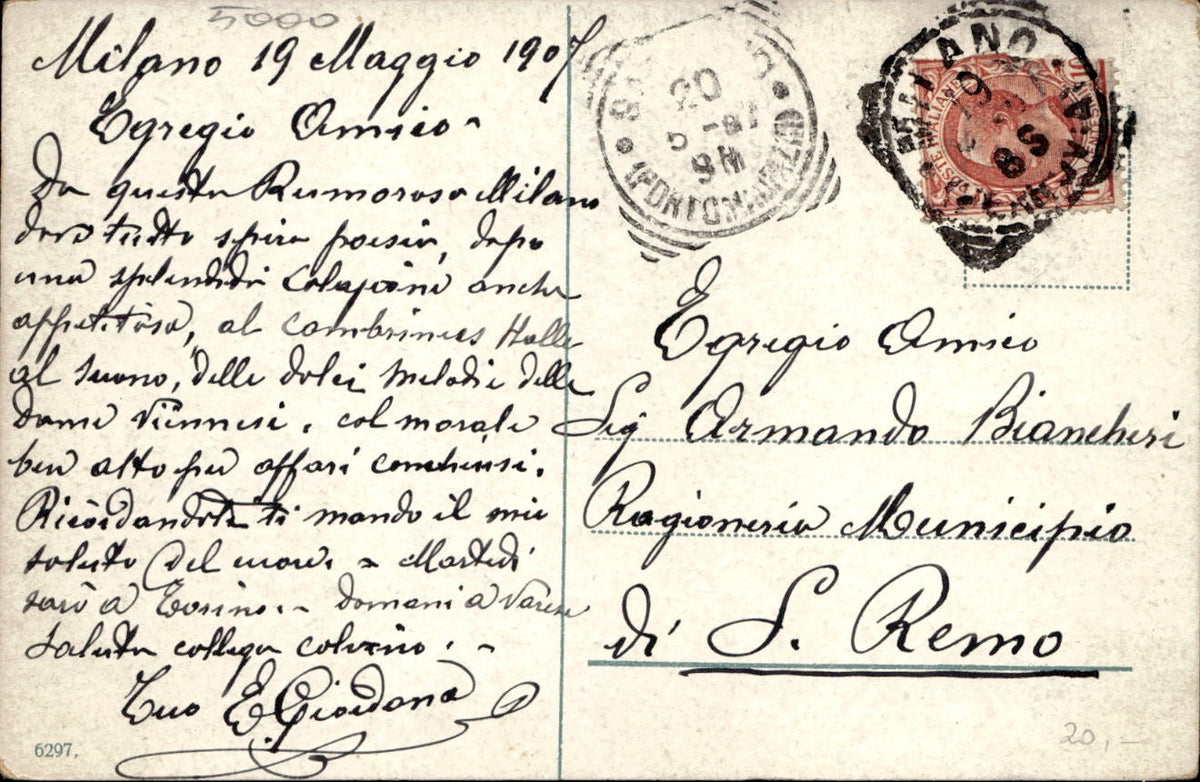 5000
Milano 19 Maggio 1907
Egregio Amico -
Da questa Rumorosa Milano
dove tutto spira poesia, dopo
una splendida Colazione anche
appetitosa, al Cambrinus Halle
al suono, delle dolci melodie delle
dame Viennesi, col morale
ben alto per affari conchiusi.
Ricordandoti ti mando il mio
saluto del cuore. - Martedì
sarò a Torino. - Domani a Varese
Saluta collega
Tuo E. Giordana
6297.
20
5 -
PORTO MAURIZIO
MILANO
19
POSTE ITALIANE
Egregio Amico
Sig Armando Biancheri
Ragioneria Municipio
di S. Remo
20,-